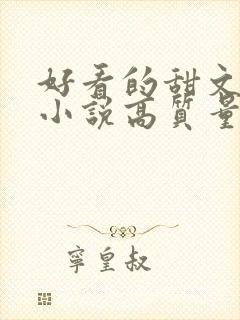 好看的甜文
小說高質量
寧皇叔